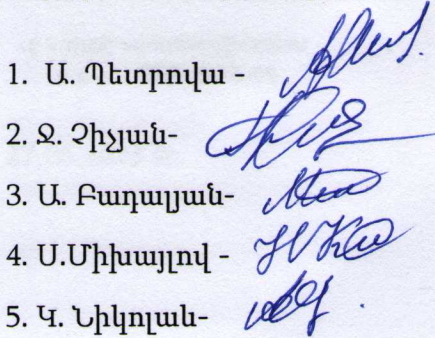 1. Ա. Պետրովա -
2. Ջ. Չիչյան-
3. Ա. Բադալյան-
4. Ս.Միխայլով -
5. Կ. Նիկոլաև-